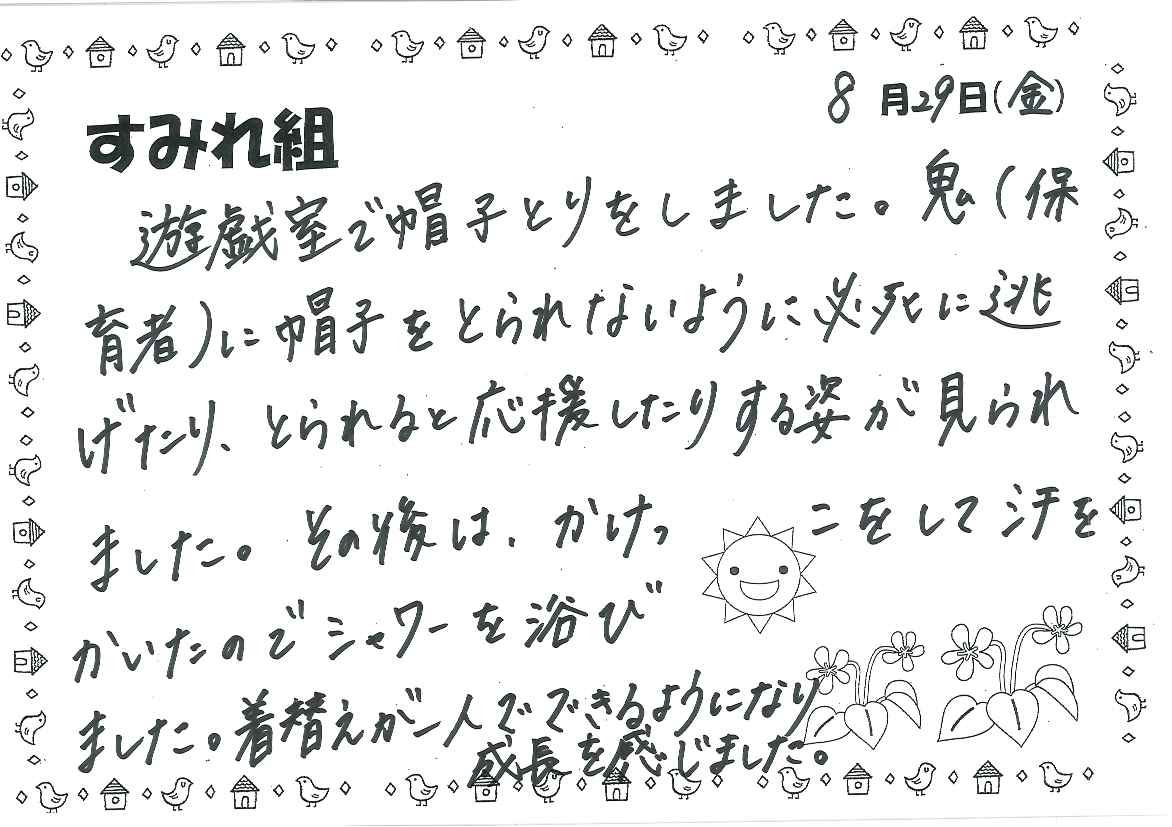 8月29日(金)
すみれ組
遊戯室で帽子とりをしました。鬼(保
育者)に帽子をとられないように必死に逃
げたり、とられると応援したりする姿が見られ
ました。その後は、かけっこをして汗を
かいたのでシャワーを浴び
ました。着替えが一人でできるようになり
成長を感じました。